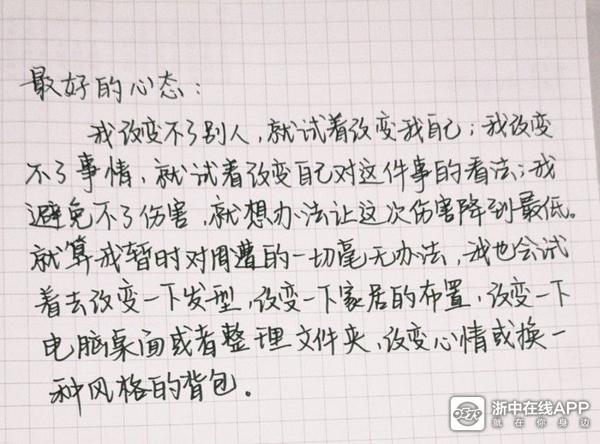 最好的心态：
我改变不了别人，就试着改变我自己；我改变
不了事情，就试着改变自己对这件事的看法；我
避免不了伤害，就想办法让这次伤害降到最低。
就算我暂时对周遭的一切毫无办法，我也会试
着去改变一下发型，改变一下家居的布置，改变一下
电脑桌面或者整理文件夹，改变心情或换一
种风格的背包。
浙中在线APP
就在你身边